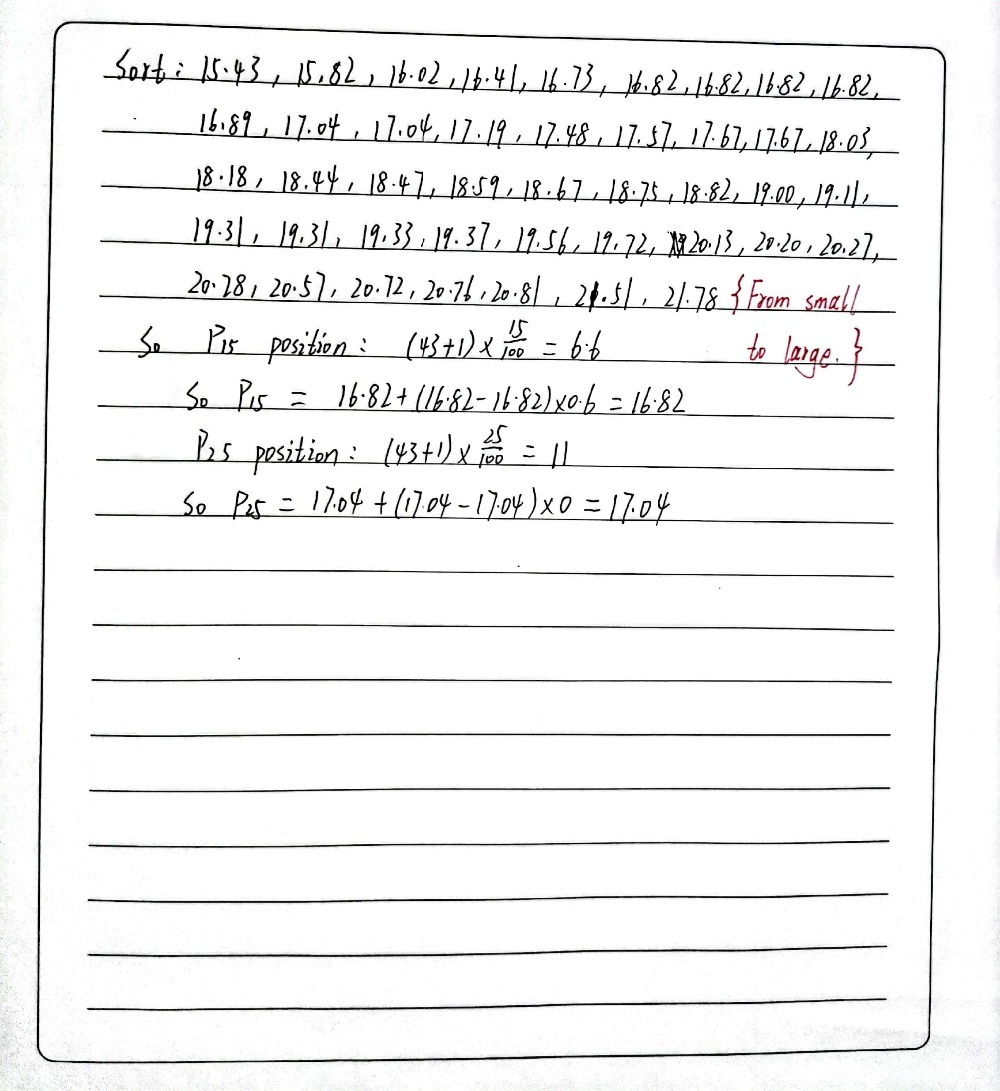 Sort: 15.43, 15.82, 16.02, 16.41, 16.73, 16.82, 16.82, 16.82, 16.82,
16.89, 17.04, 17.04, 17.19, 17.48, 17.57, 17.67, 17.67, 18.03,
18.18, 18.44, 18.47, 18.59, 18.67, 18.75, 18.82, 19.00, 19.11,
19.31, 19.31, 19.33, 19.37, 19.56, 19.72, 20.13, 20.20, 20.27,
20.28, 20.57, 20.72, 20.76, 20.81, 21.51, 21.78 {From small
to large.}
So P15 position: (43+1)×15/100 = 6.6
So P15 = 16.82+(16.82-16.82)×0.6 = 16.82
P25 position: (43+1)×25/100 = 11
So P25 = 17.04+(17.04-17.04)×0 = 17.04